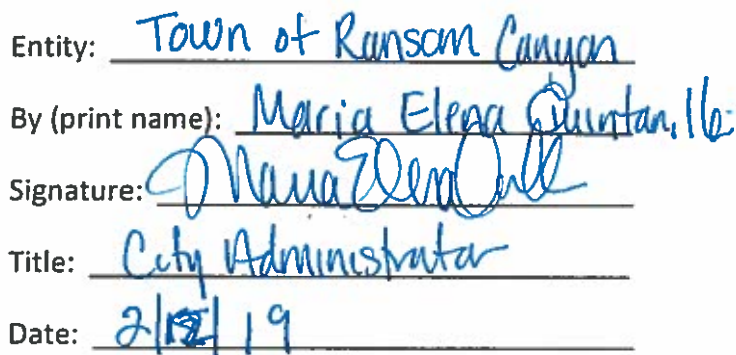 Entity: Town of Ransom Canyon
By (print name): Maria Elena Quintanilla
Signature: Maria Elena
Title: City Administrator
Date: 2/12/19